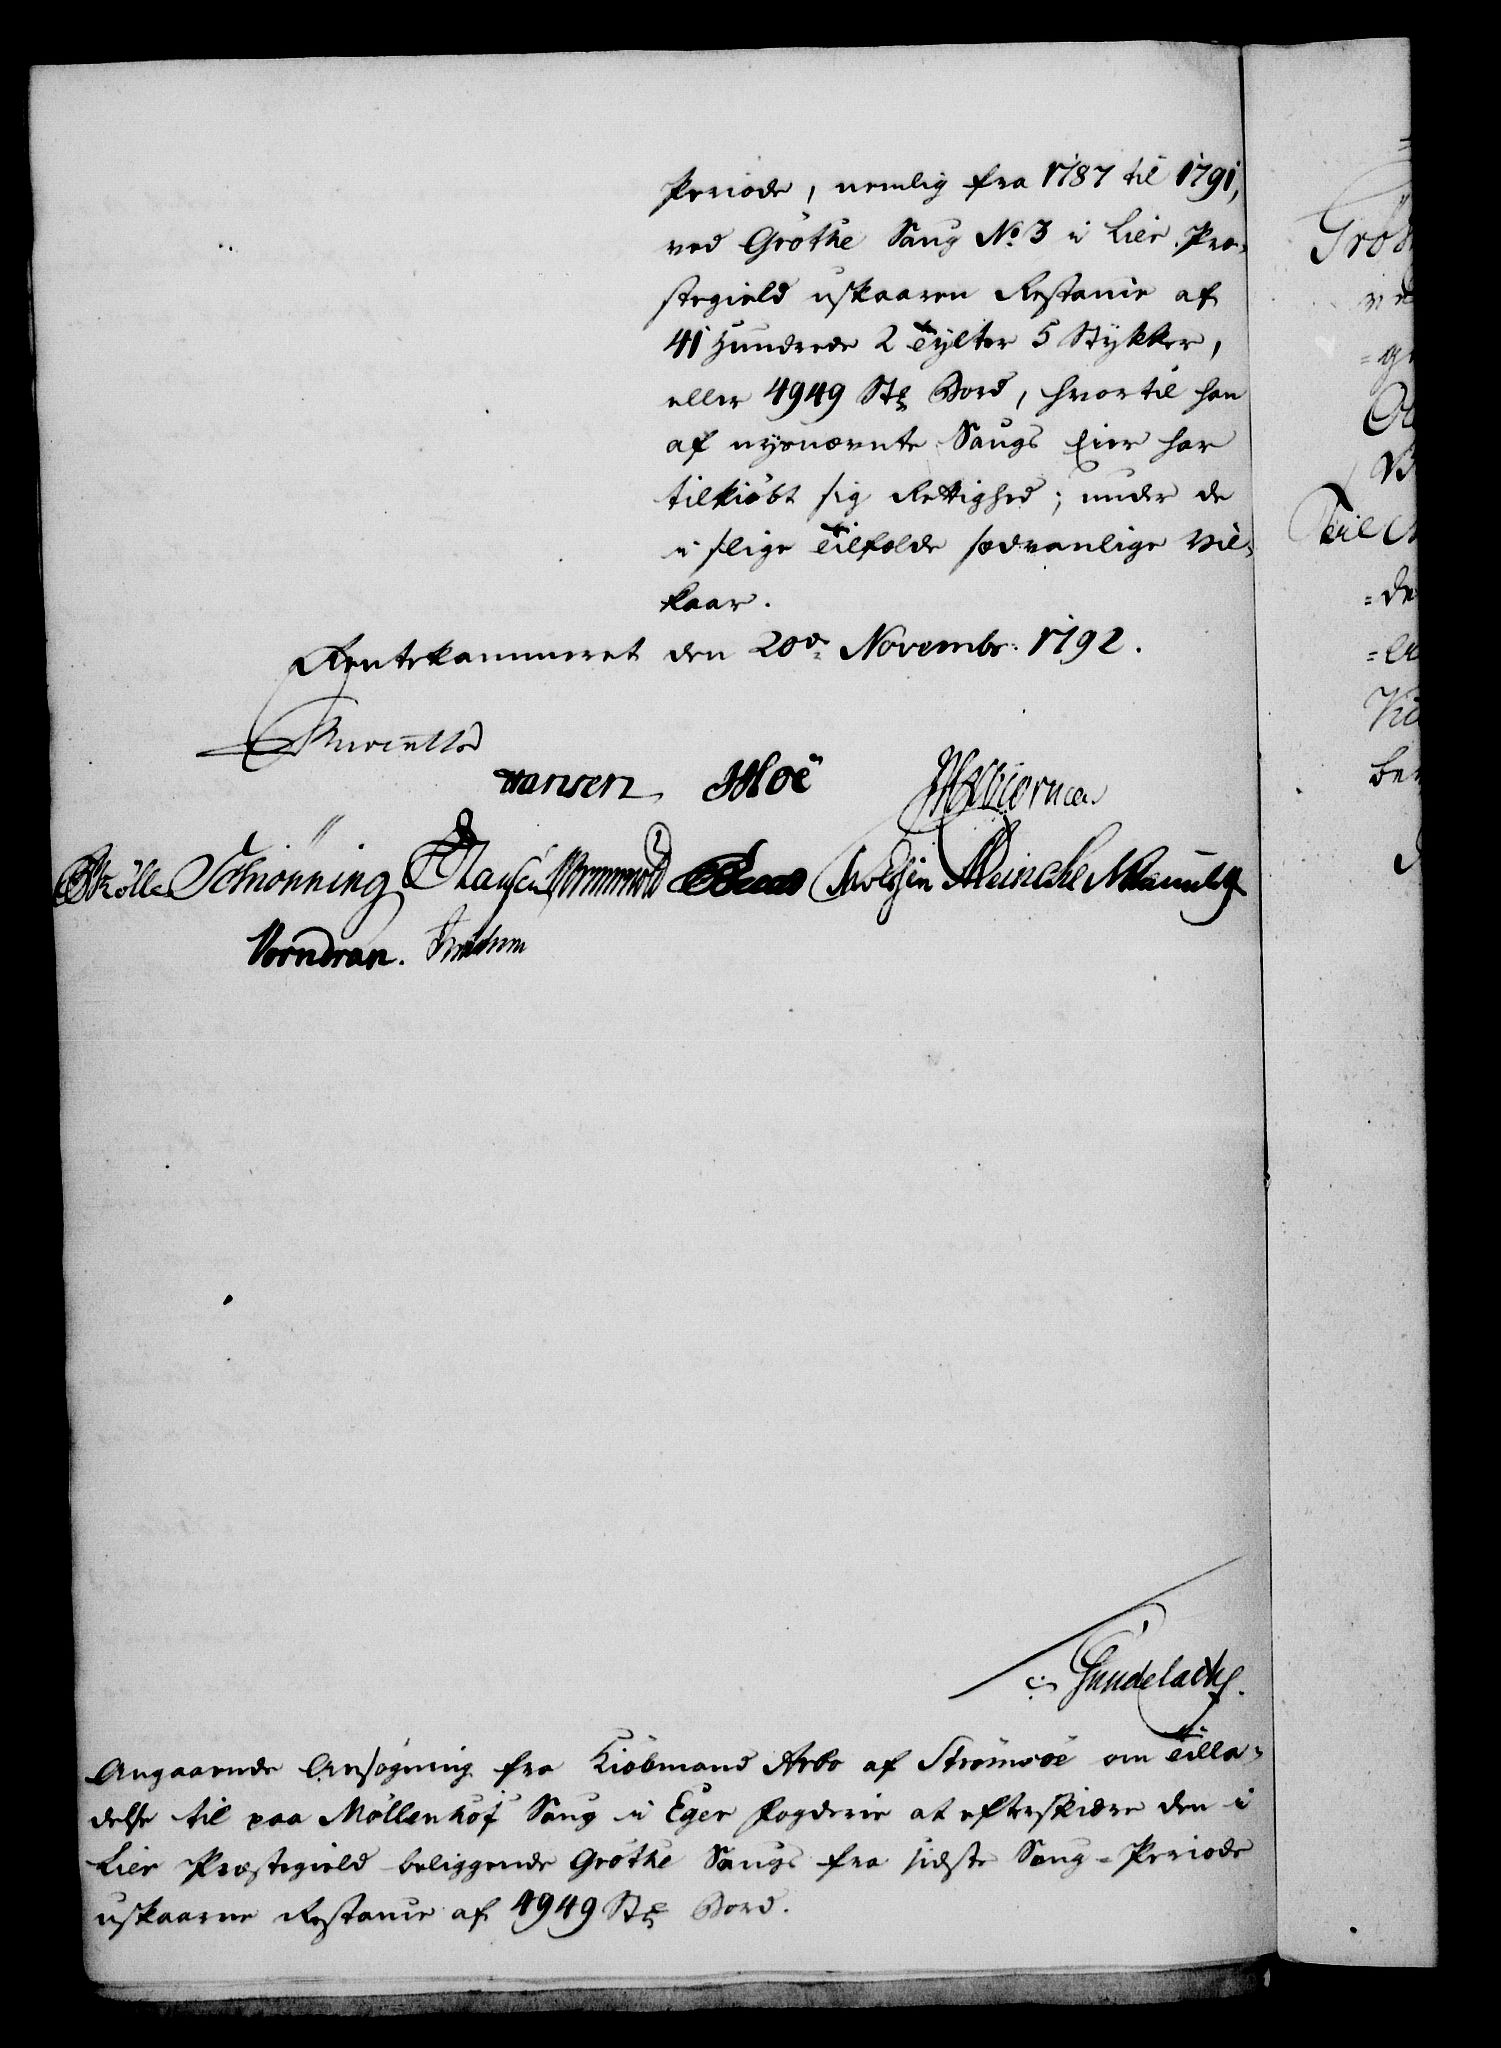 Periode, nemlig fra 1787 til 1791,
ved Gröthe Saug No. 3 i Lier Præ-
stegield uskaaren Restance af
41 Hundrede 2 Tylter 5 Stykker,
eller 4949 Stk Bord, hvortil han
af nysnævnte Saugs Eier har
tilkiöbt sig Rettighed; under de
i slige Tilfælde sædvanlige Vil-
kaar.
Rentekammeret den 20de Novembr. 1792.
Reventlow
Hansen
Schiönning
Wormskiold
Meincke
Vorndran.
Gundelach.
Angaaende Ansögning fra Kiöbmand Arbo af Strömsöe om Tilla-
delse til paa Möllenhof Saug i Eger Fogderie at efterskiære den i
Lier Præstegield beliggende Gröthe Saugs fra sidste Saug-Periode
uskaarne Restance af 4949 Stk Bord.